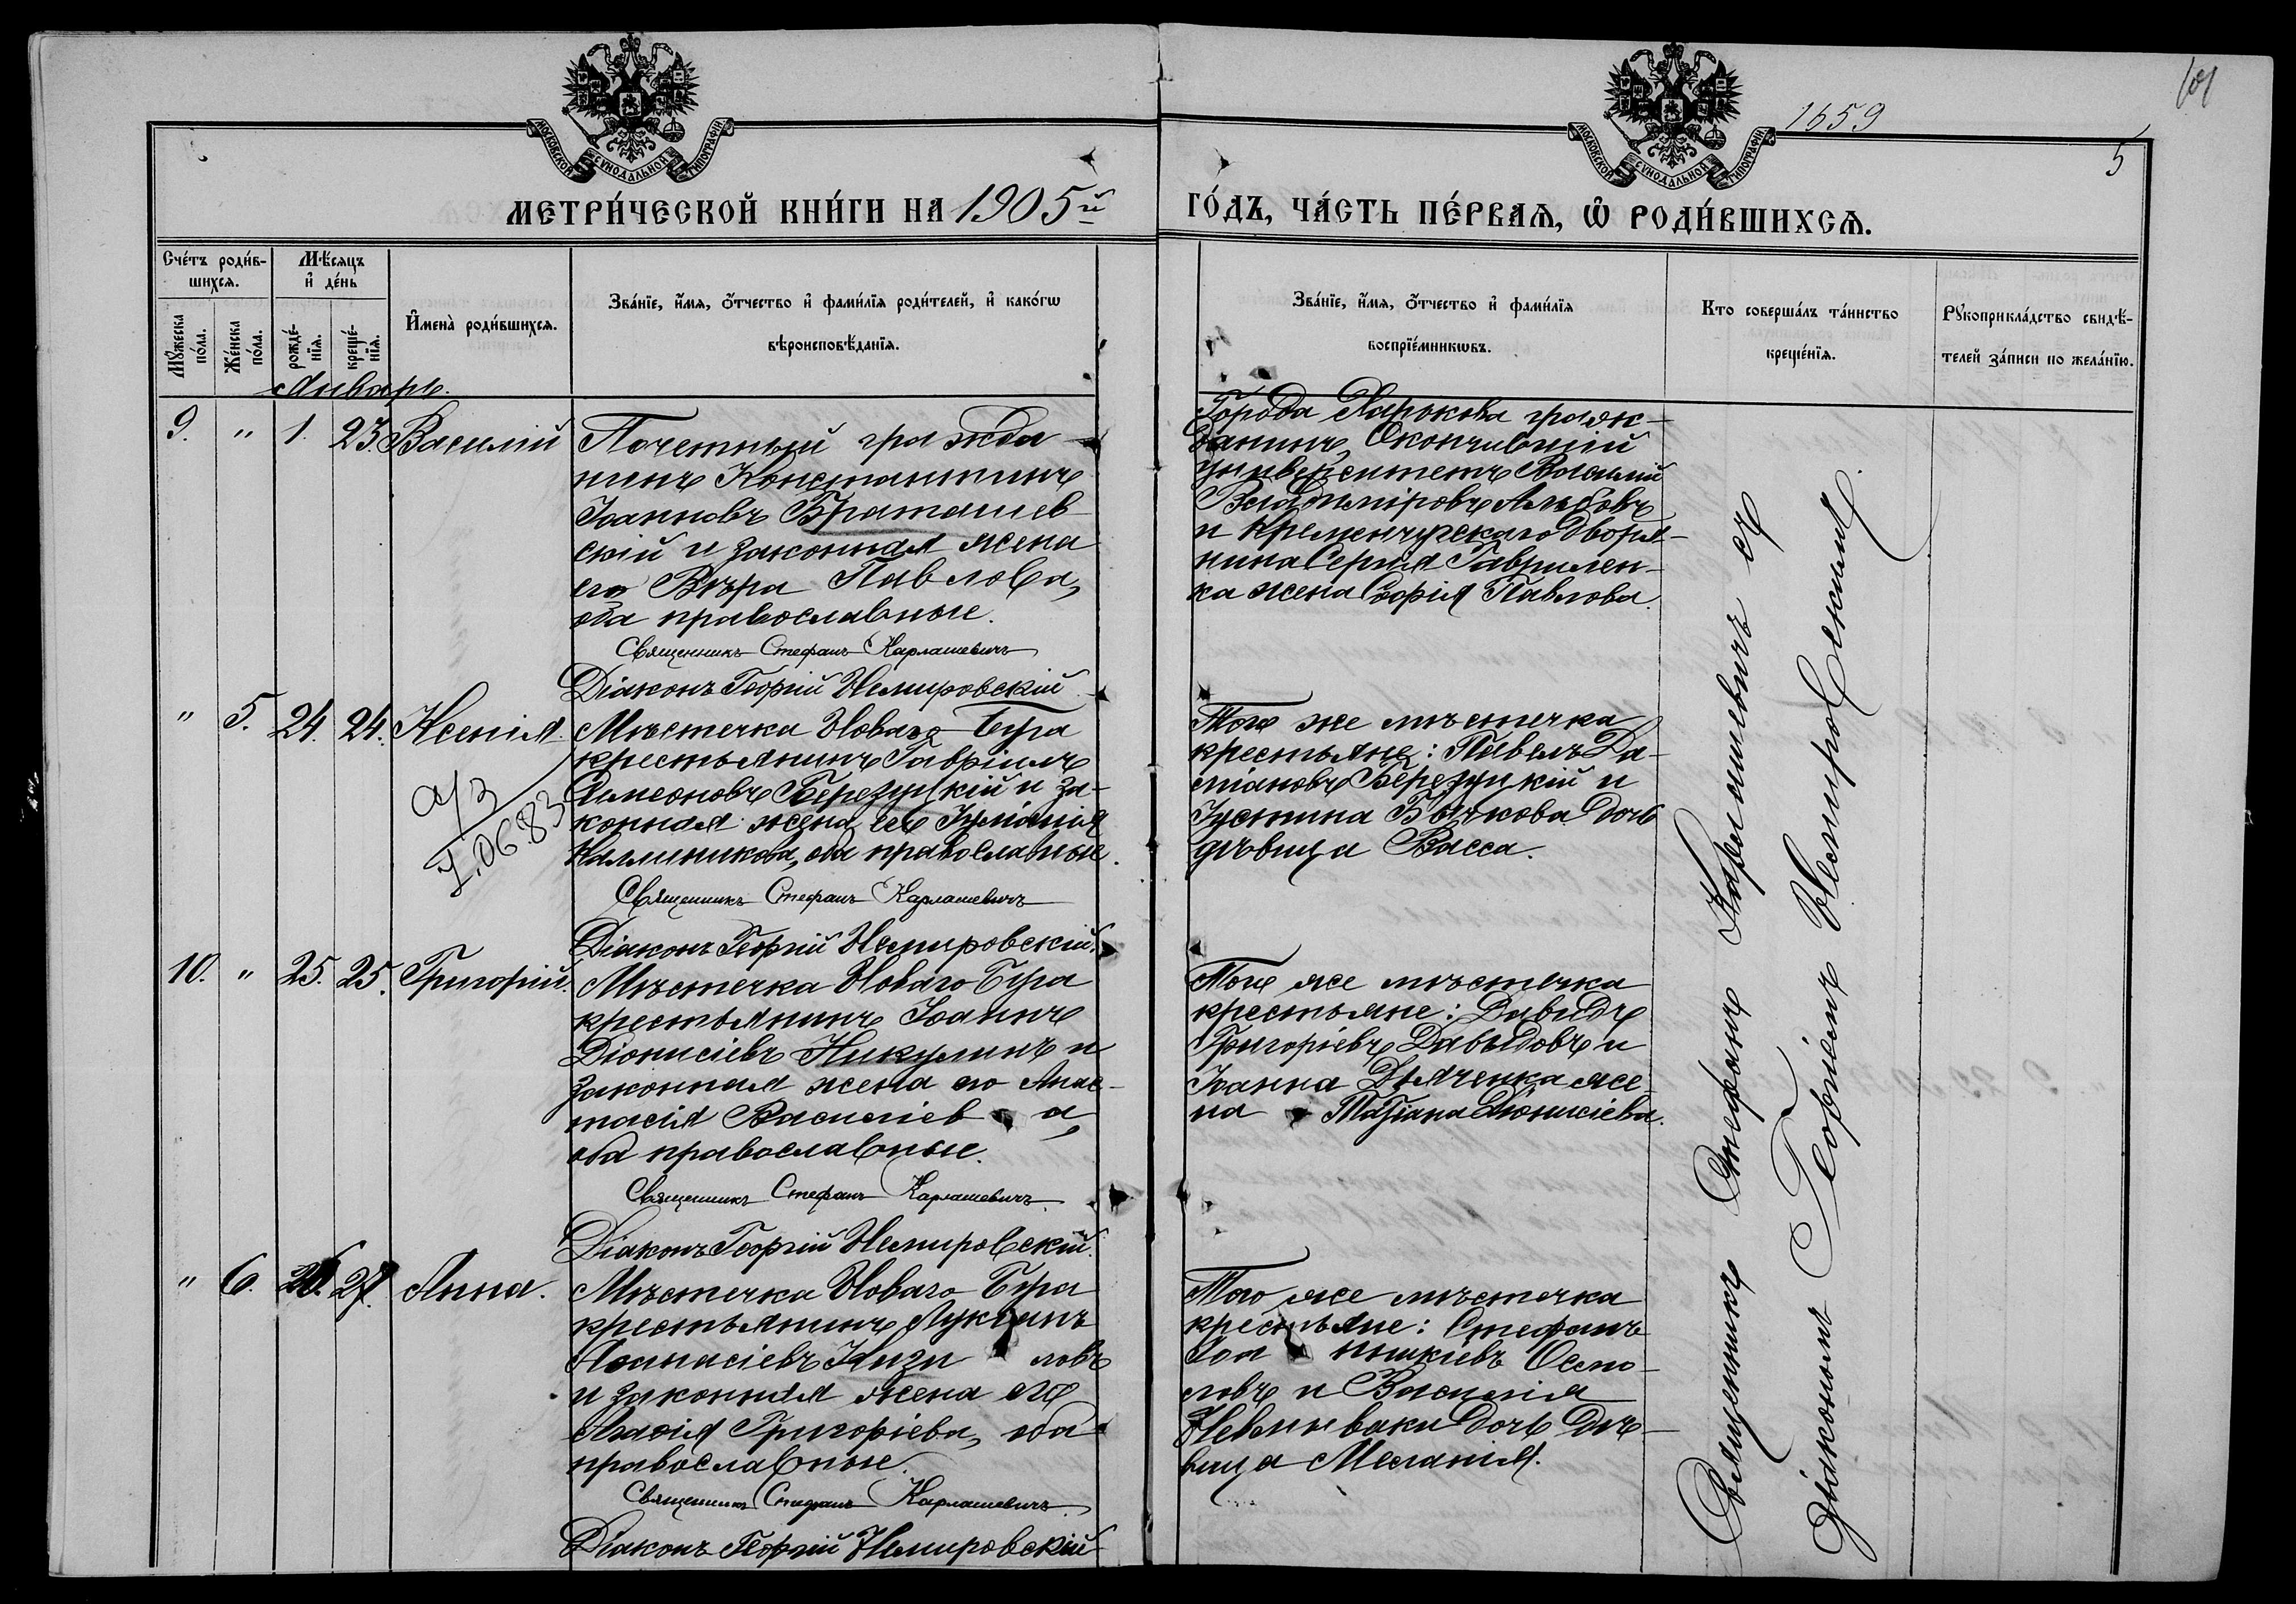 1659
101
5
МОСКОВСКОЙ СѴНОДАЛЬНОЙ ТИПОГРАФІИ
МОСКОВСКОЙ СѴНОДАЛЬНОЙ ТИПОГРАФІИ
МЕТРИ́ЧЕСКОЙ КНИ́ГИ НА 1905й
ГО́ДЪ, ЧА́СТЬ ПЕ́РВАѦ, Ѡ҆ РОДИ́ВШИХСѦ.
Сче́тъ роди́в-
шихсѧ.
Мꙋ́жеска по́ла.
Же́нска по́ла.
Мѣ́сѧцъ
и҆ де́нь
рожде́-нїѧ.
креще́-нїѧ.
И҆мена̀ роди́вшихсѧ.
Зва́нїе, и҆́мѧ, ѻ҆́тчество и҆ фами́лїѧ роди́телей, и҆ како́гѡ
вѣроисповѣ́данїѧ.
Зва́нїе, и҆́мѧ, ѻ҆́тчество и҆ фами́лїѧ
воспрїе́мникѡвъ.
Кто соверша́лъ та́инство
креще́нїѧ.
Рꙋкоприкла́дство свидѣ́-
телей за́писи по жела́нїю.
Январь.
9. " 1. 23. Василій
Почетный гражда-
нинъ Константинъ
Іоанновъ Браташев-
скій и законная жена
его Вѣра Павлова,
оба православные.
Священникъ Стефанъ Карлашевичъ
Діаконъ Георгій Немировскій
Города Харькова граж-
данинъ, Окончившій
университетъ Василій
Владиміровъ Альбовъ
и Кременчугскаго дворя-
нина Сергія Гаврилен-
ка жена Софія Павлова.
" 5. 24. 24. Ксенія
а/з
I.06.83
Мѣстечка Новаго Буга
крестьянинъ Гавріилъ
Симеоновъ Березуцкій и за-
конная жена его Іуліанія
Каллиникова, оба православные.
Священникъ Стефанъ Карлашевичъ
Діаконъ Георгій Немировскій.
Того же мѣстечка
крестьяне: Павелъ Да-
міановъ Березуцкій и
Іустина Бычкова дочь
дѣвица Васса.
10. " 25. 25. Григорій.
Мѣстечка Новаго Буга
крестьянинъ Іоаннъ
Діонисіевъ Никулинъ и
законная жена его Анас-
тасія Василіева,
оба православные.
Священникъ Стефанъ Карлашевичъ
Діаконъ Георгій Немировскій.
Того же мѣстечка
крестьяне: Давидъ
Григоріевъ Давыдовъ и
Іоанна Дьяченка же-
на Татіана Діонисіева.
" 6. 26. 27. Анна.
Мѣстечка Новаго Буга
крестьянинъ Лукіанъ
Аѳанасіевъ
и законная жена его
Агаѳія Григоріева, оба
православные.
Священникъ Стефанъ Карлашевичъ
Діаконъ Георгій Немировскій
Того же мѣстечка
крестьяне: Стефанъ
и Василія
дочь дѣ-
вица Меланія.
Священникъ Стефанъ Карлашевичъ съ
діакономъ Георгіемъ Немировскимъ.